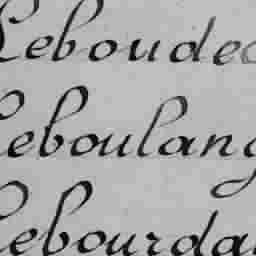 Leboude
Leboulang
Lebourda